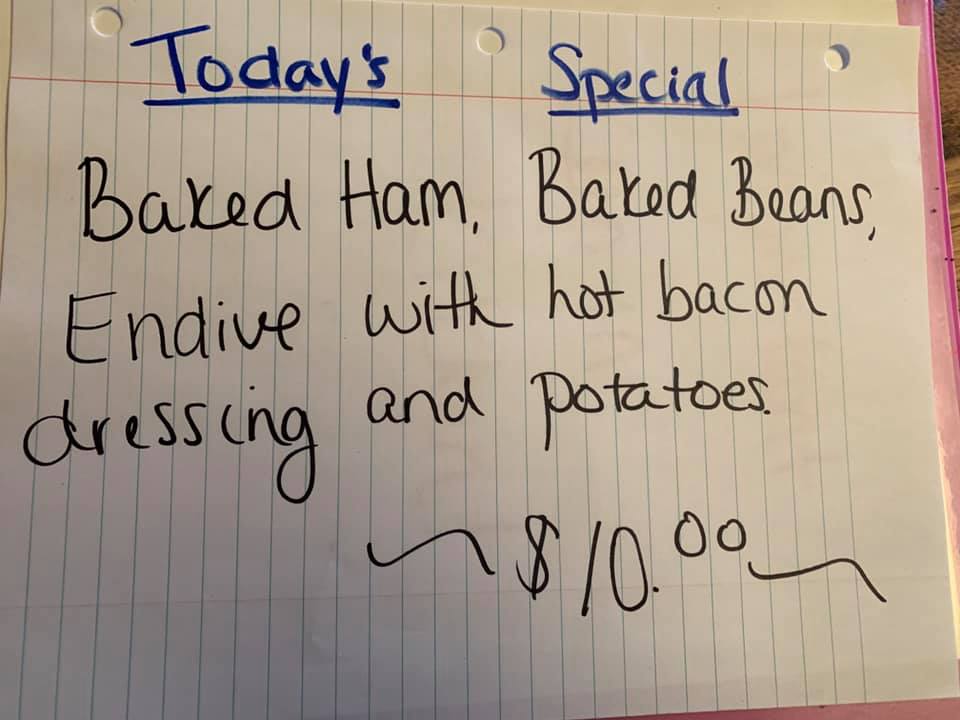 Today's Special
Baked Ham, Baked Beans,
Endive with hot bacon
dressing and potatoes.
$10.00